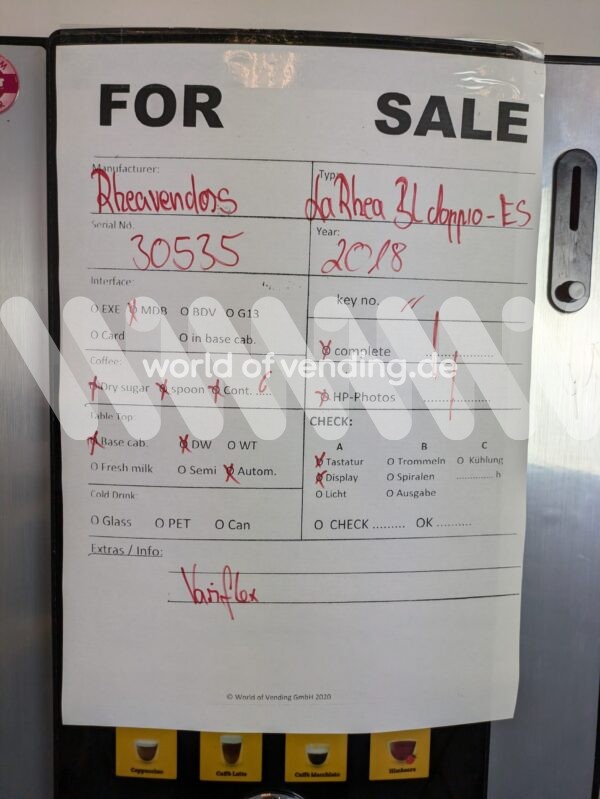 FOR SALE
Manufacturer: Type:
Rheavendors LaRhea BL doppio-ES
Serial No. Year:
30535 2018
Interface: key no.
O EXE O MDB O BDV O G13
O Card O in base cab. O complete ...............
world of vending.de
Coffee:
O Dry sugar O spoon O Cont. 6 O HP-Photos ...............
Table Top: CHECK:
O Base cab. O DW O WT A B C
O Tastatur O Trommeln O Kühlung
O Fresh milk O Semi O Autom. O Display O Spiralen ............. h
O Licht O Ausgabe
Cold Drink:
O Glass O PET O Can O CHECK ......... OK ..........
Extras / Info:
Variflex
© World of Vending GmbH 2020
Cappuccino Caffè Latte Caffè Macchiato Himbeere